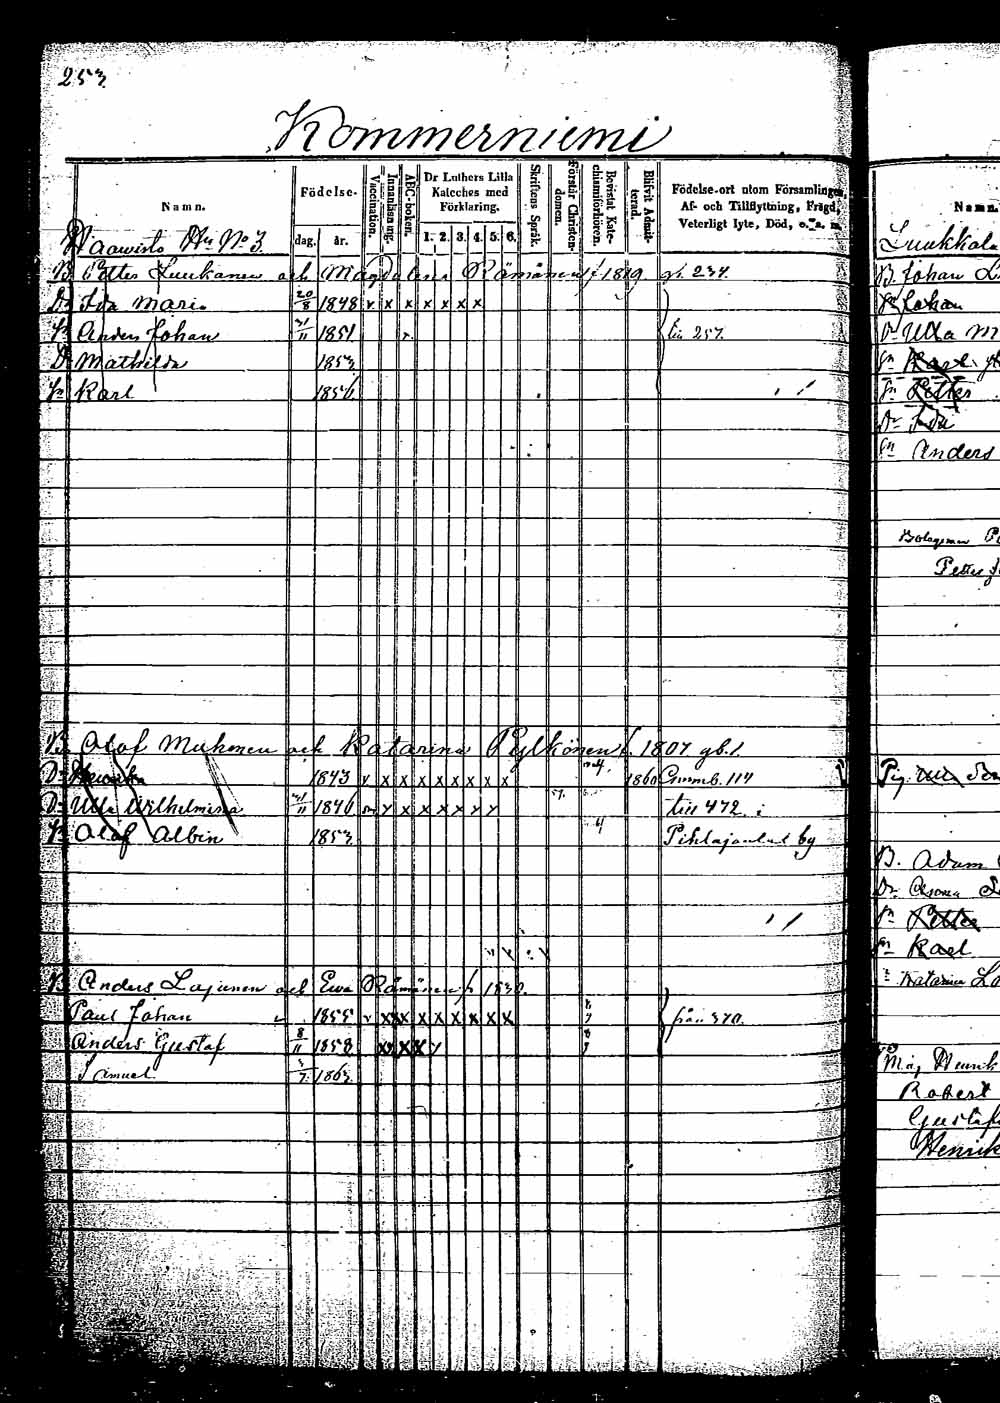 253
Kommerniemi
Namn.
Födelse-
dag. år.
Vaccination.
Innanläsning.
ABC-boken.
Dr Luthers Lilla Kateches med Förklaring.
1. 2. 3. 4. 5. 6.
Skriftens Språk.
Förstår Christendomen.
Bevistat Katechismiförhören.
Blifvit Admitterad.
Födelse-ort utom Församlingen, Af- och Tillflyttning, Frägd, Veterligt lyte, Död, o. s. m.
No 3.
B. Petter Luukanen och Magdalena Rämänen f 1819. gb. 234.
Dr Ida Maria 20/8 1848 v x x x x x x
Sn Anders Johan 1851 till 257.
Dr Mathilda 1853
Sn Karl 1856
B. Olof Muhonen och Katarina Pylkönen f. 1807. gb. 1.
Dr Henrika 1843 v x x x x x x x x 1860 114
Dr Ulla Wilhelmina 1846 x x x x x x till 472.
Sn Olof Albin 1853 by
B. Anders Lajunen och Ewa Rämänen f. 1830.
Paul Johan 1855 v x x x x x x x x från 370.
Anders Gustaf 8/11 1858
Samuel 1863
Namn.
Luukkala
B Johan L
Sn Johan
Dr Ulla M
Sn Karl
Sn Petter
Dr Ida
Sn Anders
Bolagsman
Petter
Pig.
B. Adam
Dr
Sn Petter
Sn Karl
Katarina La
Måg Henrik
Robert
Gustaf
Henrik